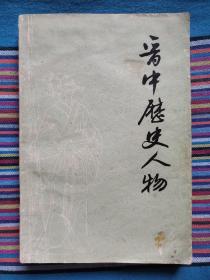 晋中历史人物